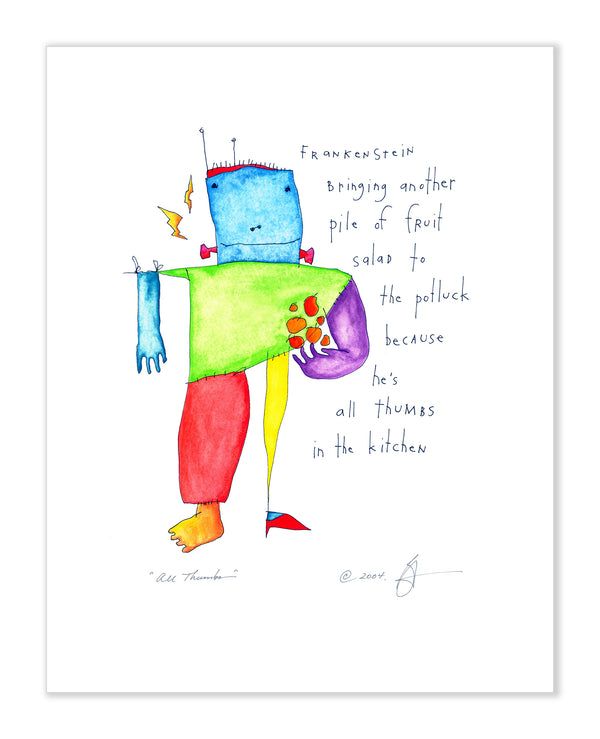 Frankenstein
bringing another
pile of fruit
salad to
the potluck
because
he's
all thumbs
in the kitchen
"All Thumbs"
© 2004.